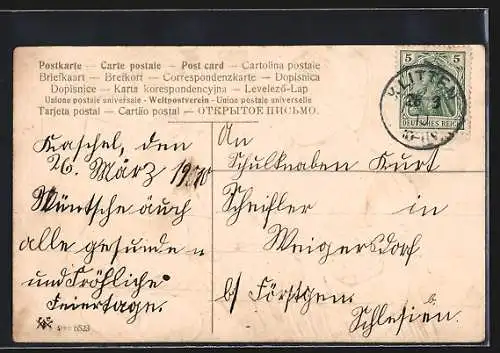 Postkarte — Carte postale — Post card — Cartolina postale
Briefkaart — Brefkort — Correspondenzkarte — Dopisnica
Dopisnice — Karta korespondencyjna — Levelező-Lap
Unione postale universale - Weltpostverein - Union postale universelle
Tarjeta postal — Cartão postal — ОТКРЫТОЕ ПИСЬМО.
5 5
DEUTSCHES REICH
KLITTEN
26 3
Kaschel, den
26. März 1910
Wüntsche äuch
alle gesunde
und Fröhliche
Feiertage.
An
Schulknaben Kurt
Scheifler in
Weigersdorf
b/ Förstgen
Schlesien.
6523